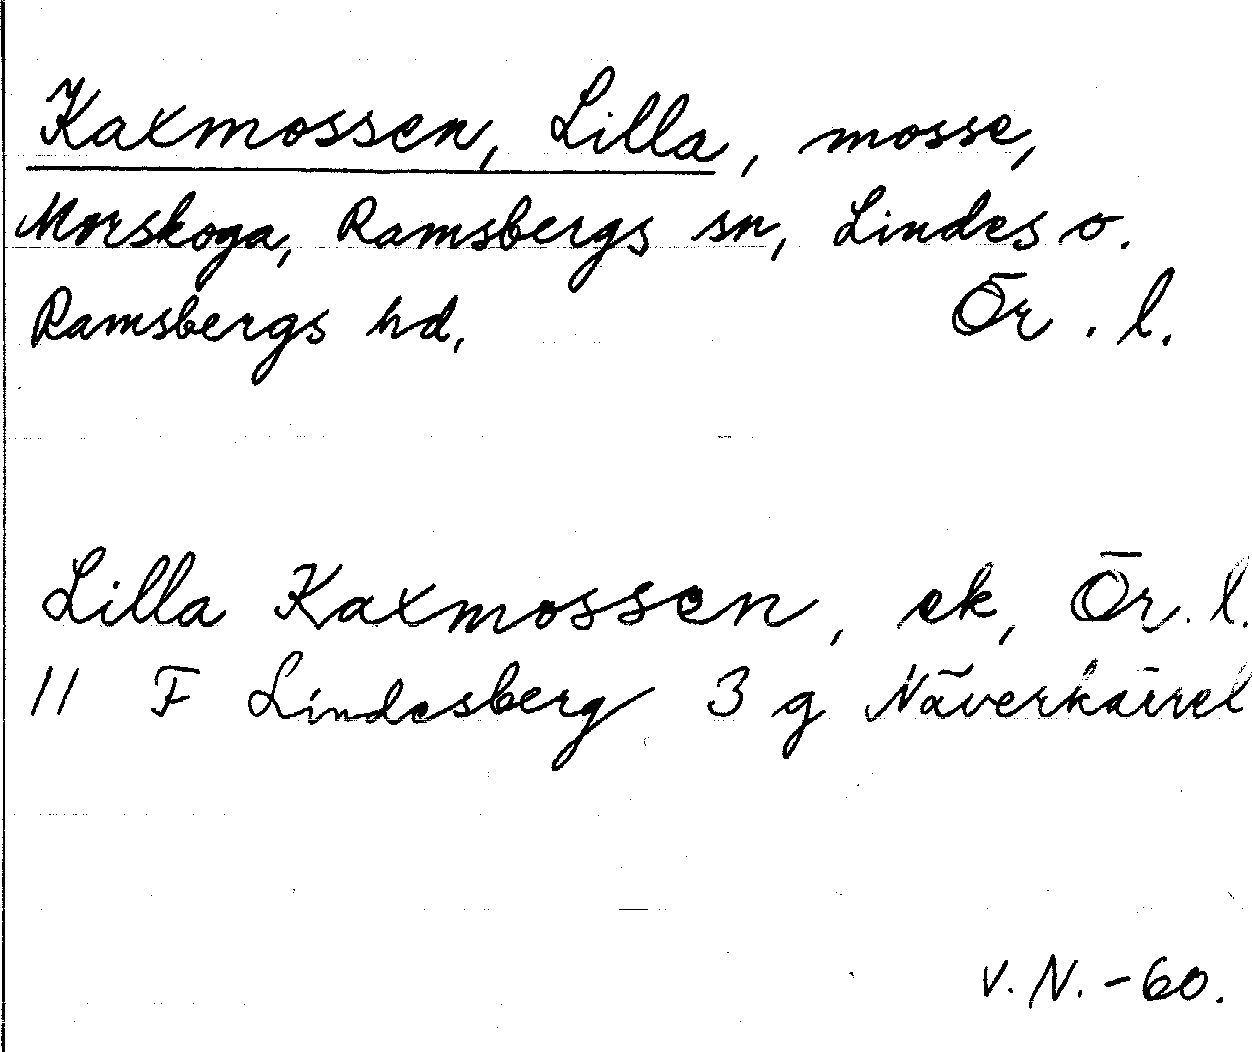 Kaxmossen, Lilla, mosse,
Morskoga, Ramsbergs sn, Lindes o.
Ramsbergs hd, Ör. l.
Lilla Kaxmossen, ek, Ör. l.
11 F Lindesberg 3 g Näverkärret
V. N. - 60.